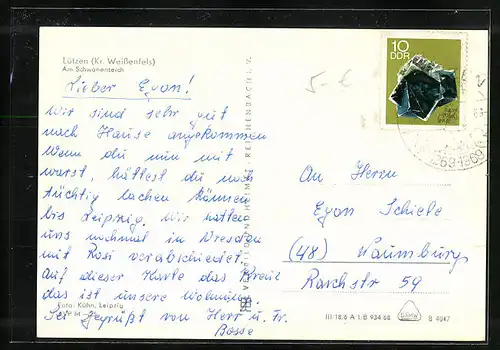 Lützen (Kr. Weißenfels)
Am Schwanenteich
Lieber Egon!
Wir sind sehr gut
nach Hause angekommen
Wenn du nun mit
warst, hättest du noch
tüchtig lachen können
bis Leipzig. Wir hatten
uns nochmal in Dresden
mit Rosi verabschiedet.
Auf dieser Karte das Kreuz
das ist unsere Wohnung.
Foto: Kühn, Leipzig
Sei gegrüßt von Herr u. Fr.
Bosse
REICHENBACH I. V.
5-€
10
DDR
An Herrn
Egon Schiele
(48) Naumburg
Rarchstr 59
III/18/6 A 1/B 934/68
B 4047